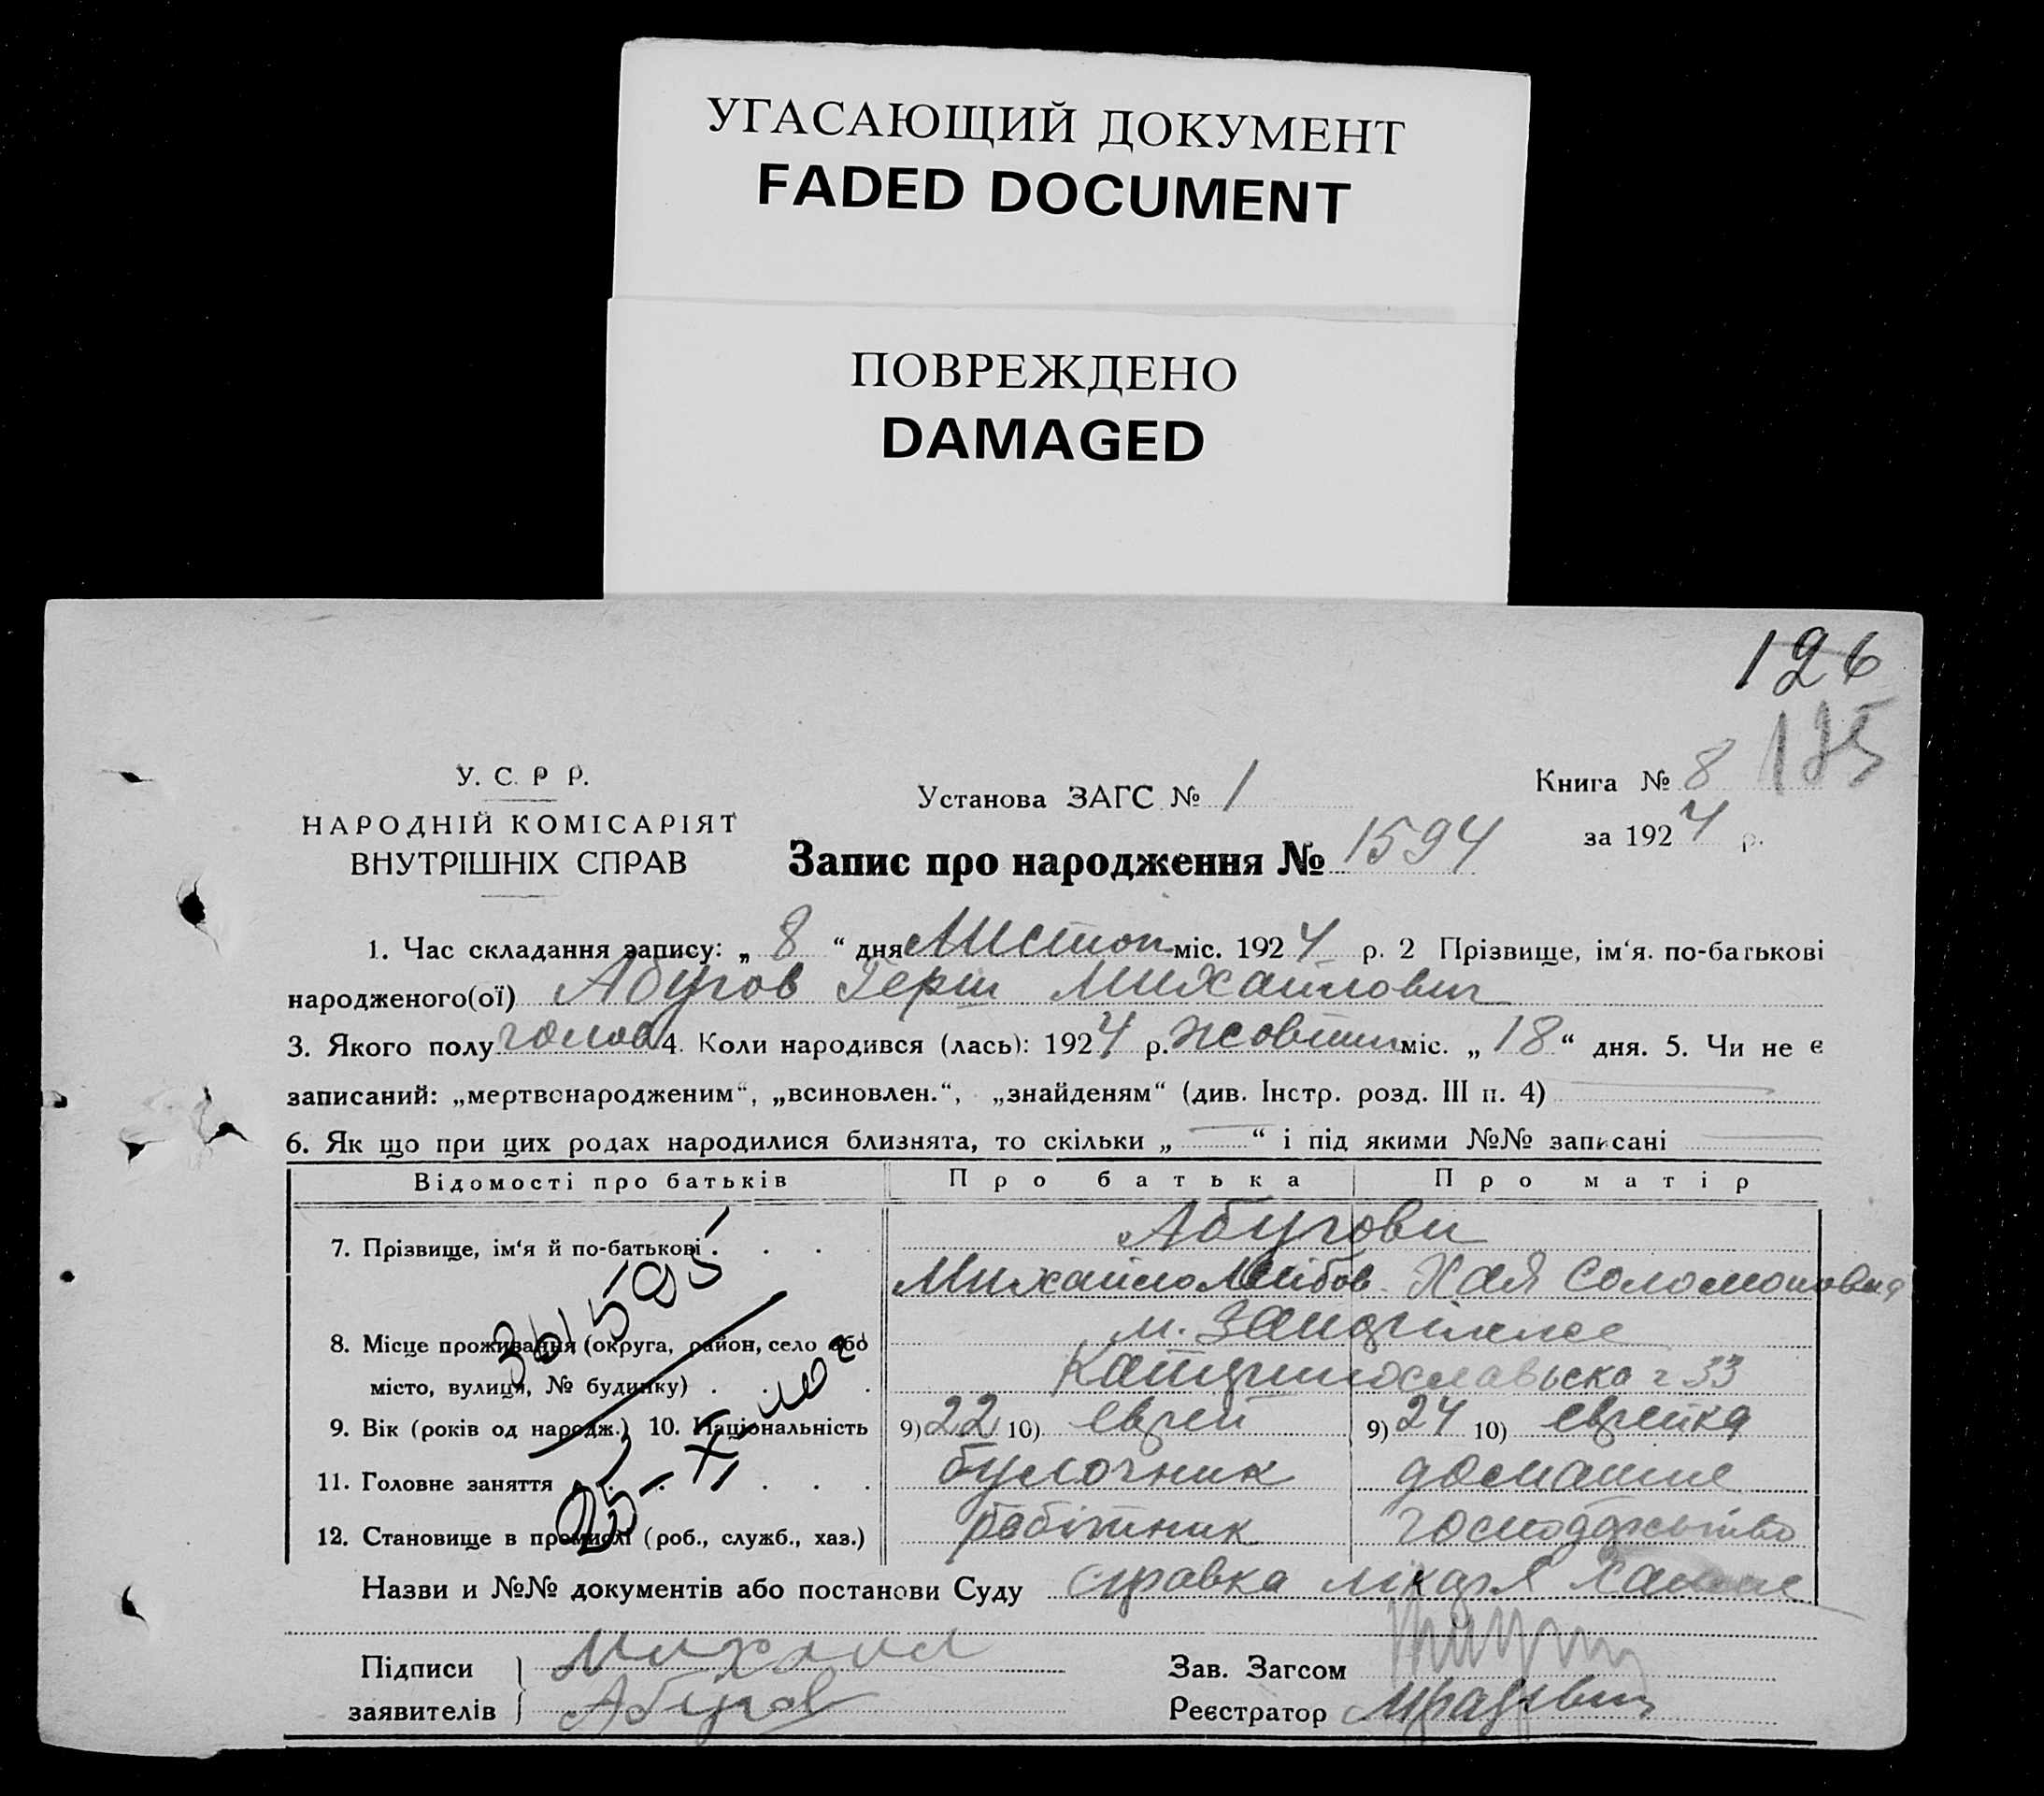 УГАСАЮЩИЙ ДОКУМЕНТ
FADED DOCUMENT
ПОВРЕЖДЕНО
DAMAGED
126
125
У. С. Р Р.
НАРОДНІЙ КОМІСАРІЯТ
ВНУТРІШНІХ СПРАВ
Установа ЗАГС № 1
Книга № 8
за 1924 р.
Запис про народження № 1594
1. Час складання запису: „ 8 “ дня Листоп міс. 1924 р. 2 Прізвище, ім‘я. по-батькові
народженого(ої) Абугов Герш Михайлович
3. Якого полу чолов 4. Коли народився (лась): 1924 р. жовтня міс. „ 18 “ дня. 5. Чи не є
записаний: „мертвонародженим“, „всиновлен.“, „знайденям“ (див. Інстр. розд. III п. 4)
6. Як що при цих родах народилися близнята, то скільки „ “ і під якими №№ записані
Відомості про батьків Про батька Про матір
7. Прізвище, ім‘я й по-батькові Абугови
Михайло Лейбов. Хая Соломоновна
8. Місце проживання (округа, район, село або
місто, вулиця, № будинку) 33
9. Вік (років од народж.) 10. Національність 9) 22 10) еврей 9) 24 10) еврейка
11. Головне заняття булочник домашнє
12. Становище в промислі (роб., служб., хаз.) робітник господарьство
361595
25-XI
Назви и №№ документів або постанови Суду справка лікаря
Підписи Михаил
заявителів Абугов
Зав. Загсом
Реєстратор